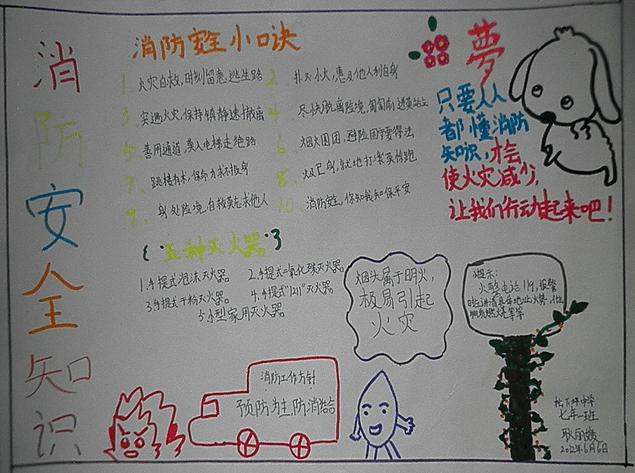 消防安全知识
消防安全小口诀
1、火灾自救,时刻留意,逃生路
2、扑灭小火,惠及他人利自身
3、突遇火灾,保持镇静速撤离
4、尽快脱离险境,
5、善用通道,莫入电梯走绝路
6、烟火围困,避险固守要得法
7、跳楼有术,保命力求不损身
8、火已及身,就地打滚莫惊跑
9、身处险境,自救莫忘求他人
10、消防安全,你知我知保平安
五种灭火器
1、手提式泡沫灭火器
2、手提式二氧化碳灭火器
3、手提式干粉灭火器
4、手提式"1211"灭火器
5、小型家用灭火器
夢
只要人人
都懂消防
知识,才会
使火灾减少,
让我们行动起来吧!
烟头属于明火,
极易引起
火灾
提示:
火警电话119,报警
消防工作方针
预防为主防消结合
七年一班
2012年6月6日